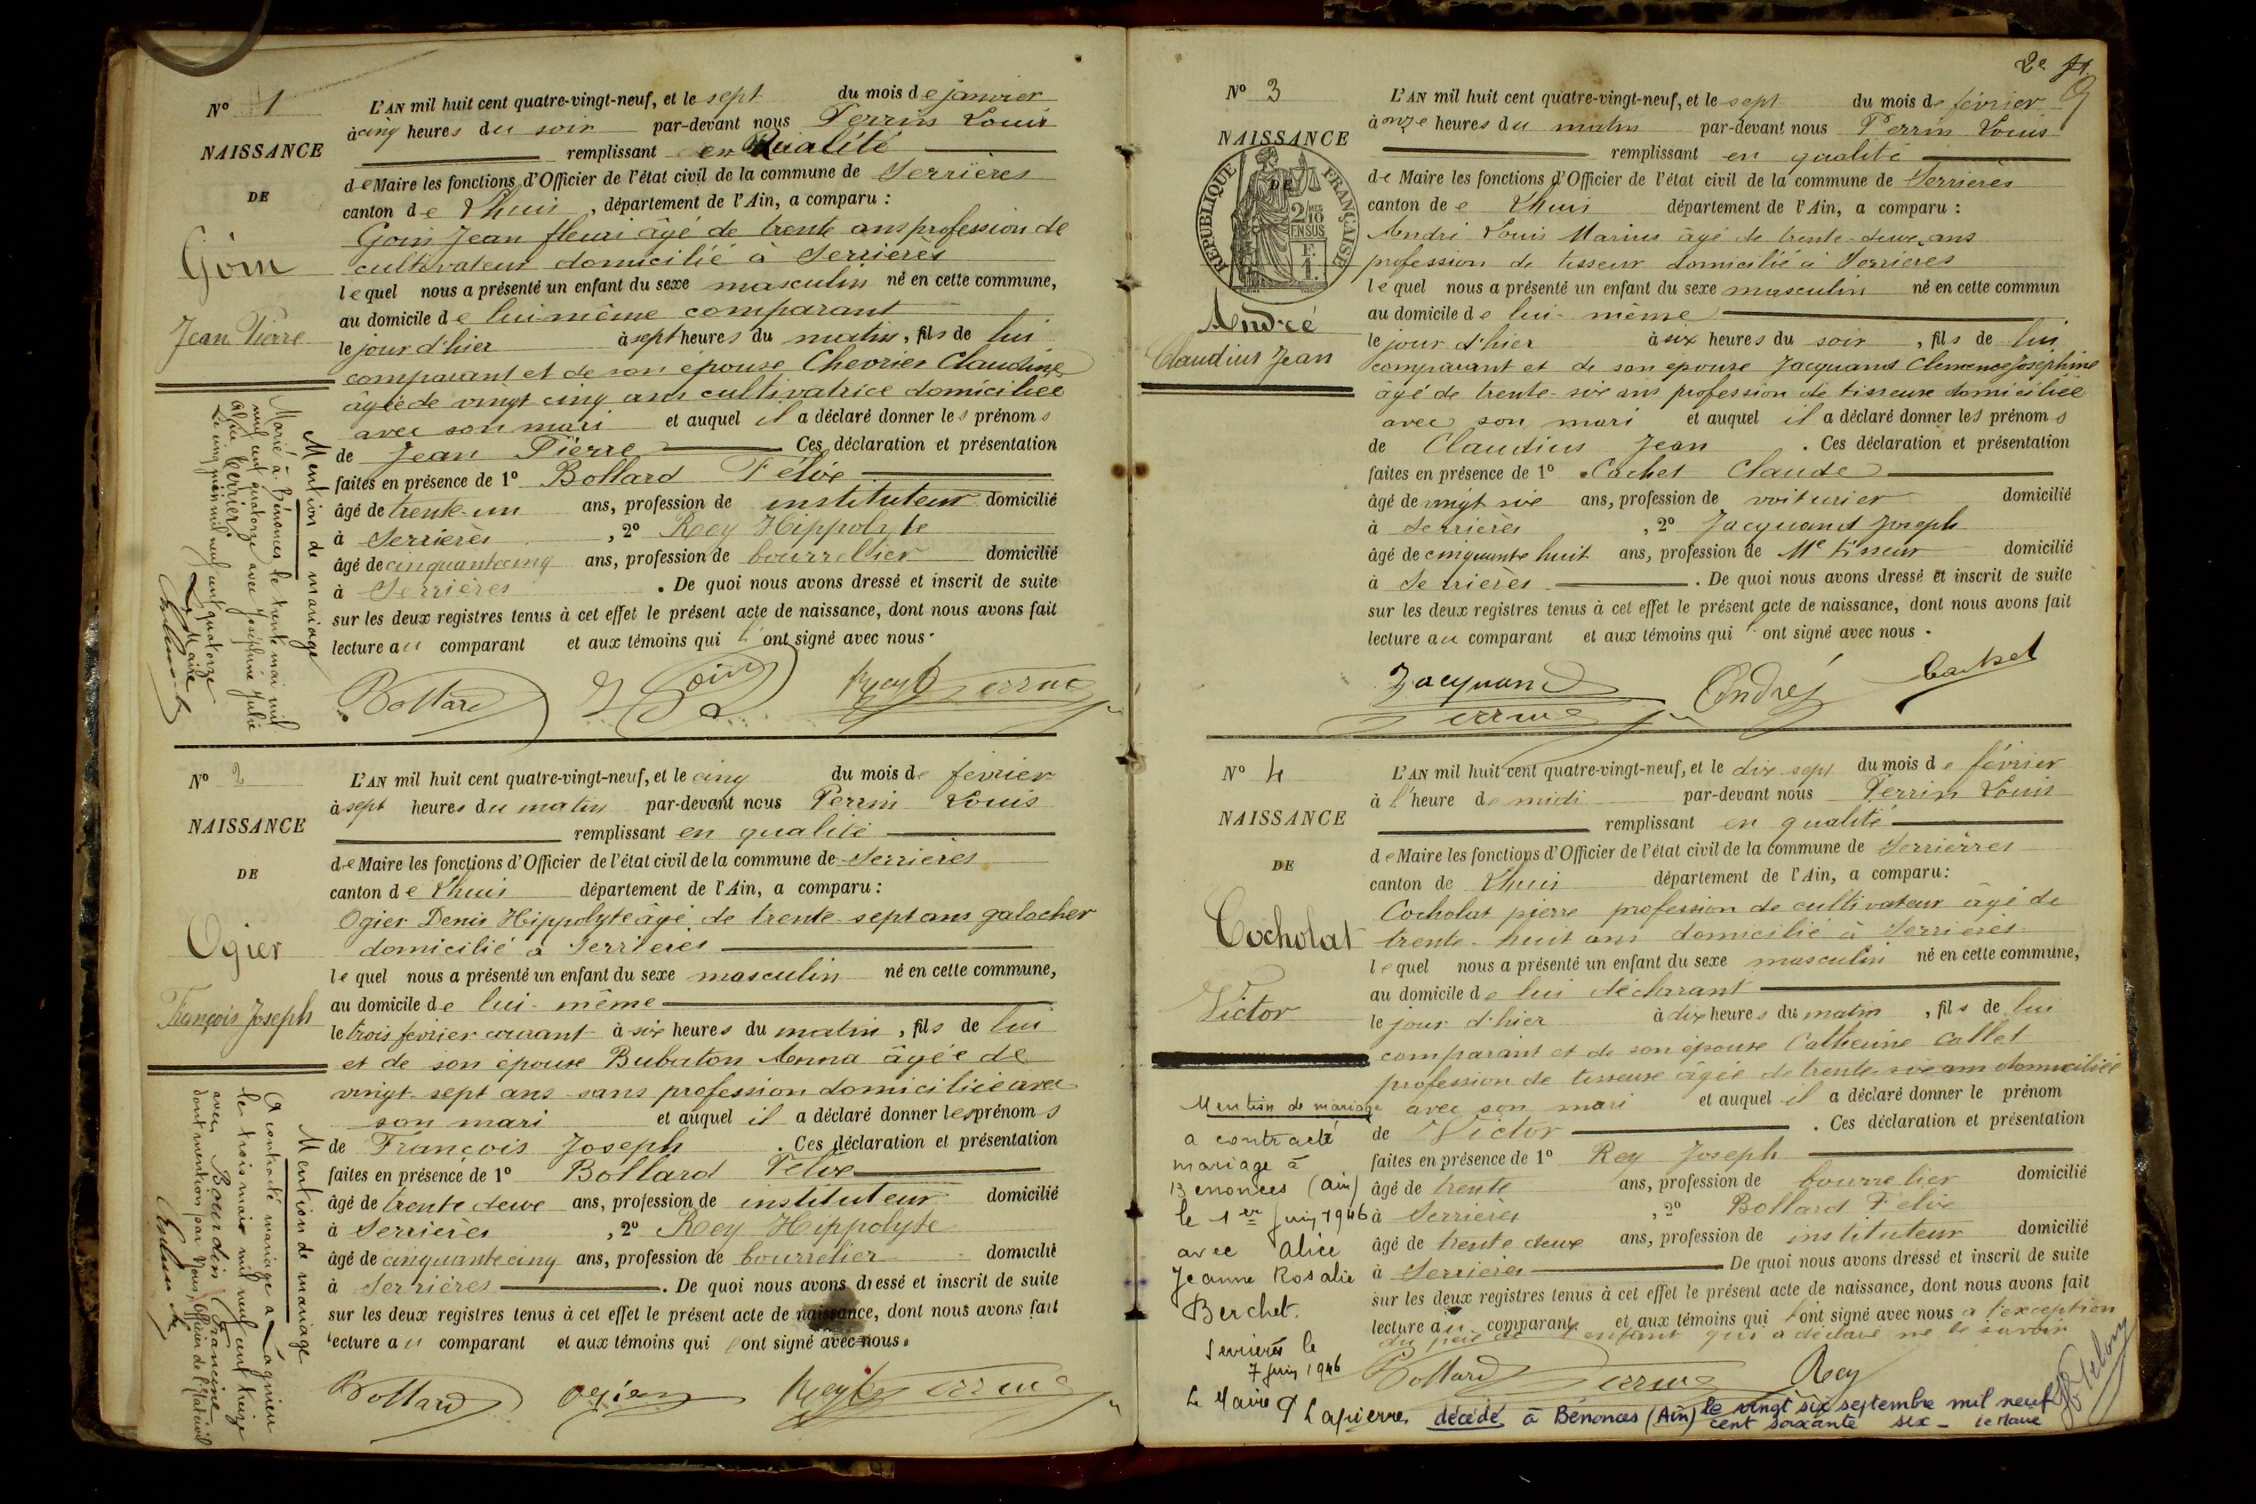 N° 1
NAISSANCE
DE
Goin
Jean Pierre
L'AN mil huit cent quatre-vingt-neuf, et le sept du mois de janvier
à cinq heures du soir par-devant nous Perrin Louis
remplissant en Qualité
de Maire les fonctions d'Officier de l'état civil de la commune de Serrières
canton de Lhuis, département de l'Ain, a comparu :
Goin Jean fleuri âgé de trente ans profession de
cultivateur domicilié à Serrières
lequel nous a présenté un enfant du sexe masculin né en cette commune,
au domicile de lui-même comparant
le jour d'hier à sept heures du matin, fils de lui
comparant et de son épouse Chevrier Claudine
âgée de vingt cinq ans cultivatrice domiciliée
avec son mari et auquel il a déclaré donner les prénoms
de Jean Pierre Ces déclaration et présentation
faites en présence de 1° Bollard Félix
âgé de trente-un ans, profession de instituteur domicilié
à Serrières, 2° Rey Hippolyte
âgé de cinquante cinq ans, profession de bourrellier domicilié
à Serrières. De quoi nous avons dressé et inscrit de suite
sur les deux registres tenus à cet effet le présent acte de naissance, dont nous avons fait
lecture au comparant et aux témoins qui l'ont signé avec nous.
Bollard Goin Rey Perrin
Mention de mariage
Marié à Bénonces le trente mai mil
neuf cent quatorze avec Joséphine Julie
Le cinq juin mil neuf cent quatorze
Le Maire
N° 2
NAISSANCE
DE
Ogier
François Joseph
L'AN mil huit cent quatre-vingt-neuf, et le cinq du mois de fevrier
à sept heures du matin par-devant nous Perrin Louis
remplissant en qualité
de Maire les fonctions d'Officier de l'état civil de la commune de Serrières
canton de Lhuis département de l'Ain, a comparu :
Ogier Denis Hippolyte âgé de trente-sept ans galocher
domicilié à Serrières
lequel nous a présenté un enfant du sexe masculin né en cette commune,
au domicile de lui-même
le trois fevrier courant à six heures du matin, fils de lui
et de son épouse Bubaton Anna âgée de
vingt-sept ans sans profession domiciliée avec
son mari et auquel il a déclaré donner les prénoms
de François Joseph. Ces déclaration et présentation
faites en présence de 1° Bollard Félix
âgé de trente deux ans, profession de instituteur domicilié
à Serrières, 2° Rey Hippolyte
âgé de cinquante cinq ans, profession de bourrelier domicilié
à Serrières. De quoi nous avons dressé et inscrit de suite
sur les deux registres tenus à cet effet le présent acte de naissance, dont nous avons fait
lecture au comparant et aux témoins qui l'ont signé avec nous.
Bollard Ogier Rey Perrin
Mention de mariage
A contracté mariage à Lagnieu
le trois mars mil neuf cent treize
avec Bourdin Francine
dont mention par Nous, Officier de l'Etat civil
2e ft
N° 3
NAISSANCE
DE
RÉPUBLIQUE FRANÇAISE
2/10 EN SUS
F. 1.
André
Claudius Jean
L'AN mil huit cent quatre-vingt-neuf, et le sept du mois de février
à onze heures du matin par-devant nous Perrin Louis
remplissant en qualité
de Maire les fonctions d'Officier de l'état civil de la commune de Serrières
canton de e Lhuis département de l'Ain, a comparu :
André Louis Marius âgé de trente-deux ans
profession de tisseur domicilié à Serrières
lequel nous a présenté un enfant du sexe masculin né en cette commun
au domicile de lui-même
le jour d'hier à six heures du soir, fils de lui
comparant et de son épouse Jacquand Clémence Joséphine
âgé de trente-six ans profession de tisseuse domiciliée
avec son mari et auquel il a déclaré donner les prénoms
de Claudius Jean. Ces déclaration et présentation
faites en présence de 1° Cachet Claude
âgé de vingt six ans, profession de voiturier domicilié
à Serrières, 2° Jacquand Joseph
âgé de cinquante huit ans, profession de Me tisseur domicilié
à Serrières. De quoi nous avons dressé et inscrit de suite
sur les deux registres tenus à cet effet le présent acte de naissance, dont nous avons fait
lecture au comparant et aux témoins qui l'ont signé avec nous.
Jacquand André Cachet
Perrin
N° 4
NAISSANCE
DE
Cocholat
Victor
L'AN mil huit cent quatre-vingt-neuf, et le dix sept du mois de février
à l'heure de midi par-devant nous Perrin Louis
remplissant en qualité
de Maire les fonctions d'Officier de l'état civil de la commune de Serrièrres
canton de Lhuis département de l'Ain, a comparu :
Cocholat pierre profession de cultivateur âgé de
trente-huit ans domicilié à Serrières
lequel nous a présenté un enfant du sexe masculin né en cette commune,
au domicile de lui déclarant
le jour d'hier à dix heures du matin, fils de lui
comparant et de son épouse Catherine Callet
profession de tisseuse âgée de trente-six ans domiciliée
avec son mari et auquel il a déclaré donner le prénom
de Victor. Ces déclaration et présentation
faites en présence de 1° Rey Joseph
âgé de trente ans, profession de bourrelier domicilié
à Serrières, 2° Bollard Félix
âgé de trente deux ans, profession de instituteur domicilié
à Serrières De quoi nous avons dressé et inscrit de suite
sur les deux registres tenus à cet effet le présent acte de naissance, dont nous avons fait
lecture au comparant et aux témoins qui l'ont signé avec nous a l'exception
du père de l'enfant qui a déclaré ne le savoir
Bollard Perrin Rey
Mention de mariage
a contracté
mariage à
Bénonces (Ain)
le 1er juin 1946
avec Alice
Jeanne Rosalie
Berchet.
Serrières le
7 juin 1946
Le Maire Lapierre
décédé à Bénonces (Ain) le vingt six septembre mil neuf
cent soixante six - le Maire